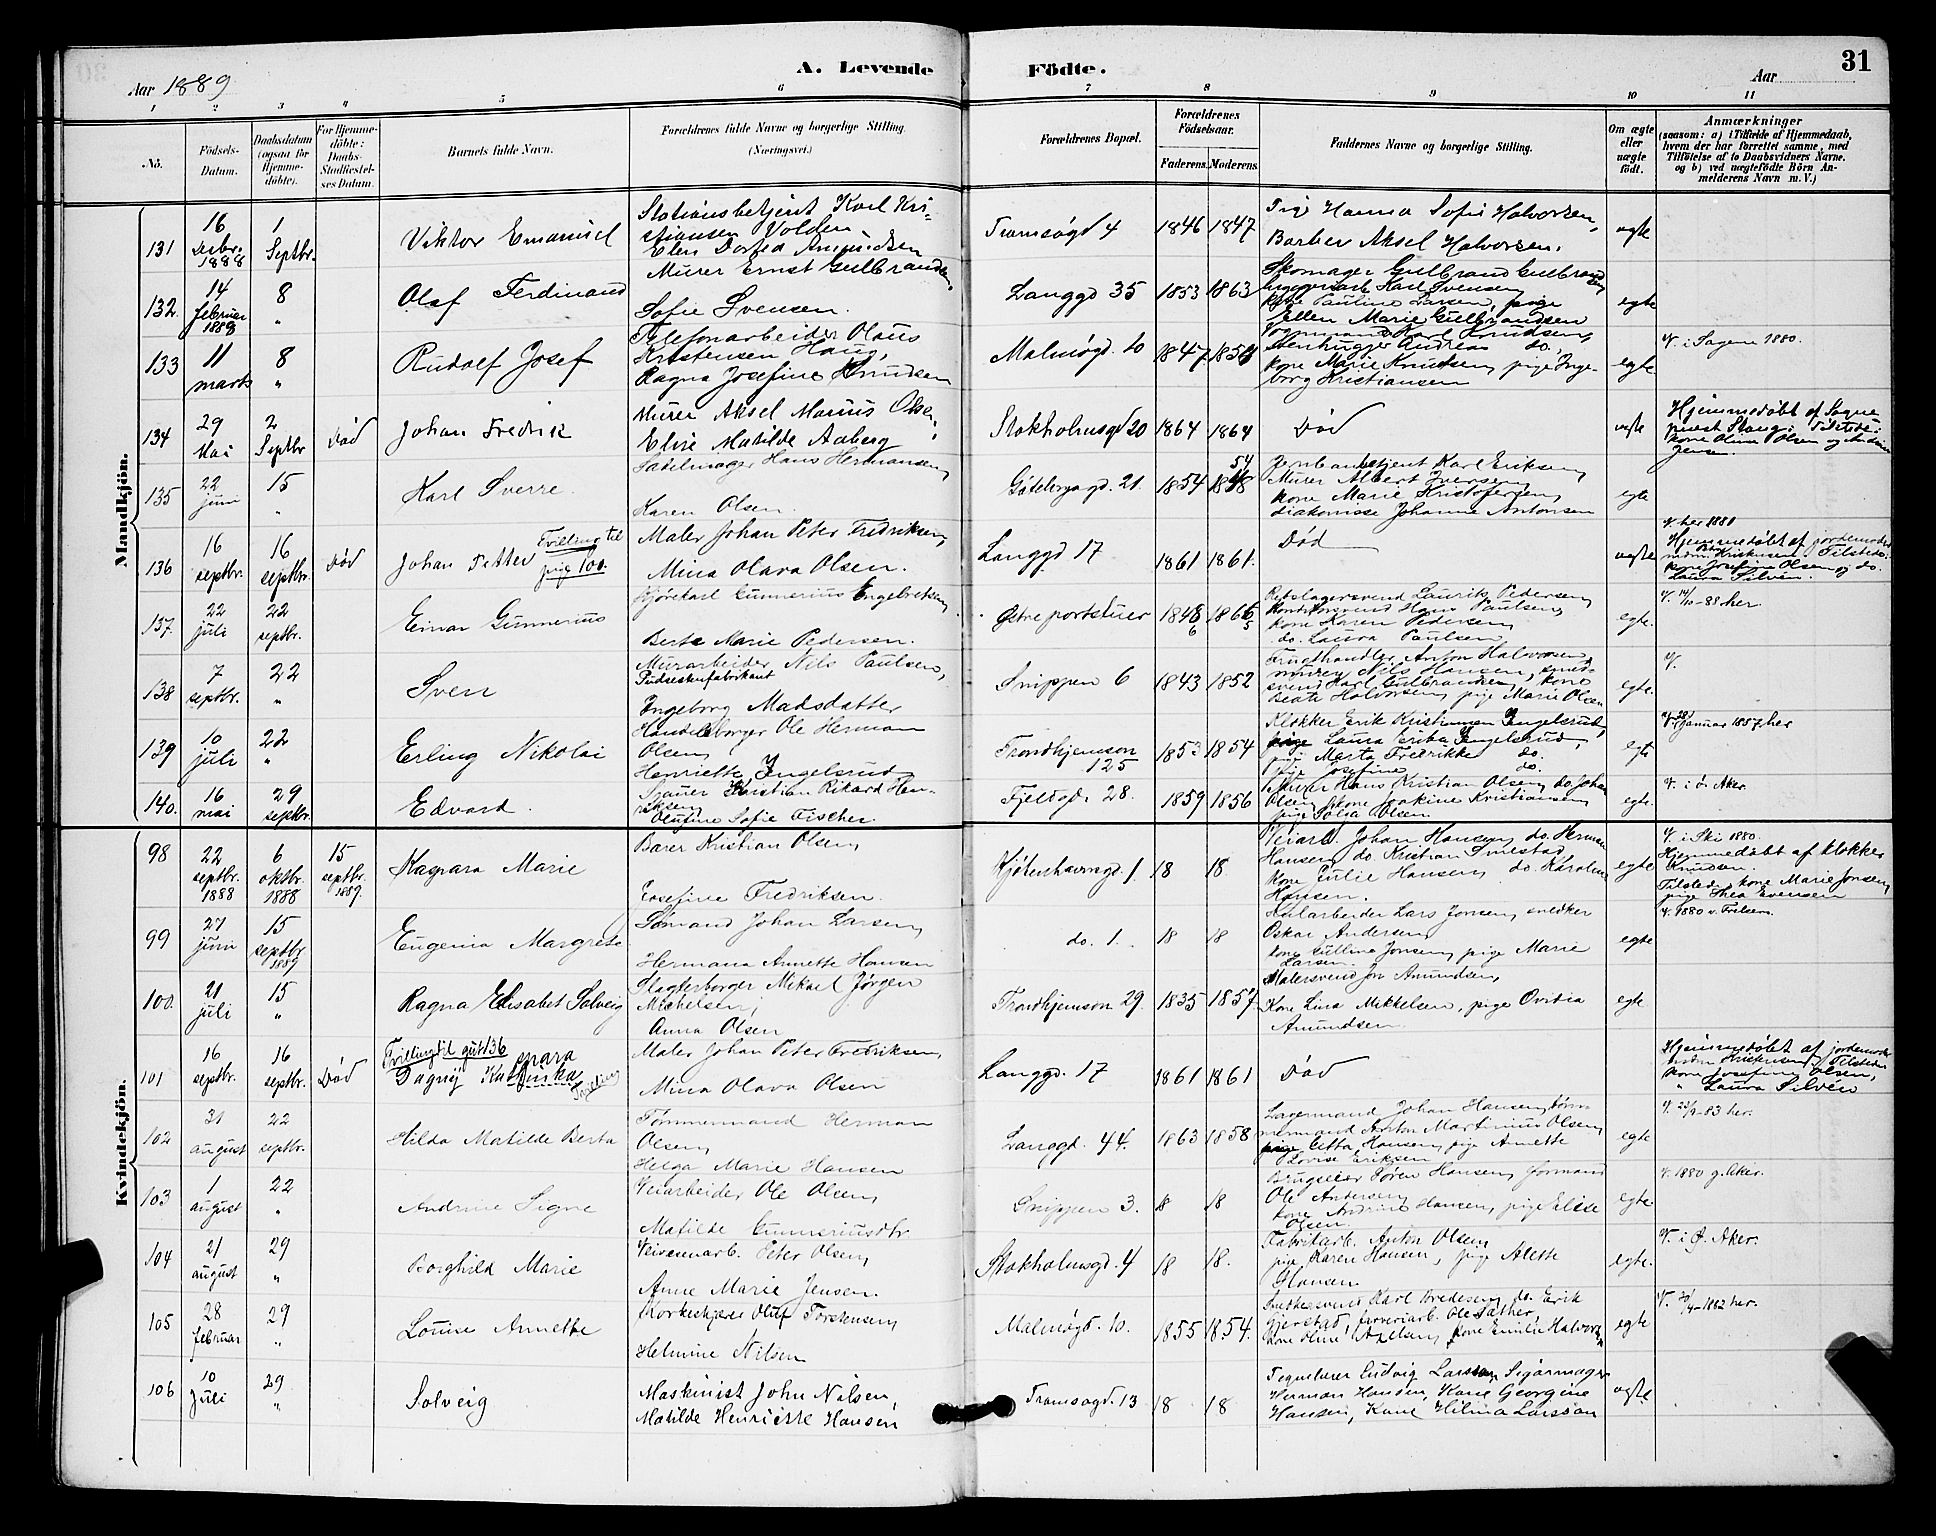 Aar 1889
A. Levende
Födte.
Aar
31
1 2 3 4 5 6 7 8 9 10 11
No.
Födsels-Datum.
Daabsdatum (ogsaa for Hjemme-döbte).
For Hjemme-döbte: Daabs-Stadfæstel-ses Datum.
Barnets fulde Navn.
Forældrenes fulde Navne og borgerlige Stilling.
(Næringsvei.)
Forældrenes Bopæl.
Forældrenes Födselsaar.
Faderens. Moderens.
Faddernes Navne og borgerlige Stilling.
Om ægte eller uægte födt.
Anmærkninger
(saasom: a) i Tilfælde af Hjemmedaab, hvem der har forrettet samme, med Tilföielse af to Daabsvidners Navne. og b) ved uægtefödte Börn An-melderens Navn m. V.)
Mandkjön.
131 16 1888 1 Septbr. Viktor Emanuel
Stationsbetjent Karl Kri-
stiansen Volden
Elen Dortea Amundsen
Tromsøgd 4 1846 1847
Pige Hanna Sofie Halvorsen,
Barber Aksel Halvorsen.
ægte
132. 14 februar 1889 8 " Olaf Ferdinand
Murer Ernst Gulbrandsen,
Sofie Svensen.
Langgd 35 1853 1863
Skomager Gulbrand Gulbrandsen
Karl Svensen
kone Pauline Larsen, pige
Ellen Marie Gulbrandsen
egte
133 11 marts 8 " Rudolf Josef
Telefonarbeider Olaus
Kristensen Haug,
Ragna Josefine Knudsen
Malmøgd. 10 1847
Karl Knudsen,
Stenhugger Andreas do.,
kone Marie Knudsen, pige Inge-
borg Kristiansen
egte
V. i Sagene 1880.
134 29 Mai 2 Septbr Død Johan Fredrik
Murer Aksel Marius Olsen,
Elise Matilde Aaberg
Stokholmsgd 20 1864 1864
Død
ægte
Hjemmedøbt af Sogne
prest Stang. Tilstede:
kone Olina Olsen og
Jensen.
135 22 juni 15 " Karl Sverre.
Sadelmager Hans Hermansen,
Karen Olsen.
Gøteborgsgd. 21. 1854 54
Jernbanebetjent Karl Eriksen,
Murer Albert Iversen,
kone Marie Kristofersen,
diakonisse Johanne Antonsen
egte
136 16 septbr. 16 septbr. Død Johan Petter Tvilling til pige 100.
Maler Johan Peter Fredriksen,
Mina Olava Olsen.
Langgd 17 1861 1861.
Død
ægte
V. her 1881
Hjemmedøbt af jordemoder
Kristensen. Tilstede:
kone Josefine Olsen og do.
Laura Silvén.
137. 22 juli 22 septbr. Einar Gunnerius
Kjørekarl Gunnerius Engebretsen,
Berte Marie Pedersen.
Østre portstuer 1848 6 1866 5
Rebslagersvend Laurits Pedersen,
Hans Paulsen,
kone Karen Pedersen
do. Laura Paulsen
egte.
V. 14/10-88 her.
138 7 septbr. 22 " Sven
Murarbeider Nils Paulsen,
Pudreskufabrikant
Ingeborg Madsdatter
Snippen 6 1843 1852
Frugthandler Anton Halvorsen,
murer Nils Hansen, smed-
svend Karl Gulbrandsen, kone
Beate Halvorsen, pige Marie Olsen
egte.
V.
139 10 juli 22 " Erling Nikolai
Handelsborger Ole Herman
Olsen,
Henriette Ingelsrud
Trondhjemson 125 1853 1854
Klokker Erik Kristiansen Ingelsrud,
Laura Erika Ingelsrud,
pige Marta Fredrikke do.
pige Josefine do.
egte
V. 28 januar 1857 her
140. 16 mai 29 septbr. Edvard.
Kristian Rikard Hen-
riksen,
Olufine Sofie Fischer.
Fjeldgd. 28. 1859 1856
Murer Hans Kristian Olsen, do Johan
Olsen, kone Joakine Kristiansen,
pige Olsen
egte.
V. i Ø. Aker.
Kvindekjön.
98 22 septbr. 1888 6 oktbr. 1888 15 septbr. 1889. Kaspara Marie
Barer Kristian Olsen,
Josefine Fredriksen.
Kjøbenhavnsgd. 1 18 18
Veiarb. Johan Hansen, do. Herman
Hansen, do. Kristian Smestad,
kone Julie Hansen, do. Karoline
Hansen.
egte
V. i Ski 1880.
Hjemmedøbt af klokker
Knudsen.
Tilstede kone Marie Jonsen,
pige Thea Evensen
99 27 juni 15 septbr. 1889 Eugenia Margrete
Sømand Johan Larsen,
Hermana Annette Hansen
do. 1. 18 18
Kularbeider Lars Jonsen, snedker
Oskar Andersen,
kone Gulline Jonsen, pige Marie
Larsen.
egte
V. 1880 v. Frelsern.
100. 21 juli 15 " Ragna Elisabet Solveig
Slagterborger Mikael Jørgen
Michelsen,
Anna Olsen
Trondhjemson 29. 1835 1857
Malersvend Jon Amundsen,
Kone Lina Mikkelsen, pige Ovidia
Amundsen.
egte
101 16 septbr. 16 septbr. Død Tvilling til gut 136 Dagny Kaspara Tvilling
Maler Johan Peter Fredriksen,
Mina Olava Olsen
Langgd. 17 1861 1861
Død
Hjemmedøbt af jordemoder
Kristensen, Tilstede:
kone Josefine Olsen,
" Laura Silvén
102 31 august 22 septbr. Hilda Matilde Berta
Tømmermand Herman
Olsen,
Helga Marie Hansen
Langgd. 44. 1863 1858
Lagermand Johan Hansen, tøm-
mermand Anton Martinius Olsen,
Hansen, pige Annette
Lovise Eriksen
egte
V. 23/9-83 her.
103 1 august 22 " Andrine Signe
Veiarbeider Ole Olsen,
Matilde Gunneriusdtr.
Snippen 3. 18 18
Brugseier Søren Hansen, formand
Ole Andersen,
kone Andrine Hansen, pige Elise
Olsen.
egte.
V. 1880 g. Aker.
104 21 august 29 " Borghild Marie
Veisenarb. Peter Olsen,
Anne Marie Jensen.
Stokholmsgd. 4 18 18.
Fabrikarb. Anton Olsen,
pige Karen Hansen, pige Alette
Hansen
egte.
V. i Ø. Aker.
105 28 februar 29 " Louise Annette
Korkeskjærer Oluf Torstensen,
Helmine Nilsen
Malmøgd. 10. 1855 1854.
Snedkersvend Karl Bredesen, do. Erik
Gjerstad, farveriarb. Ole Sæther,
kone Oline Axelsen, kone Emilie Halvorsen
egte
V. 30/4-1882 her.
106 10 Juli 29 " Solveig
Maskinist John Nilsen,
Matilde Henriette Hansen
Tromsøgd. 13 18 18
Ludvig Larsson, Sigarmager
Herman Hansen, Kone Georgine
Hansen, Kone Hilma Larsson
ægte